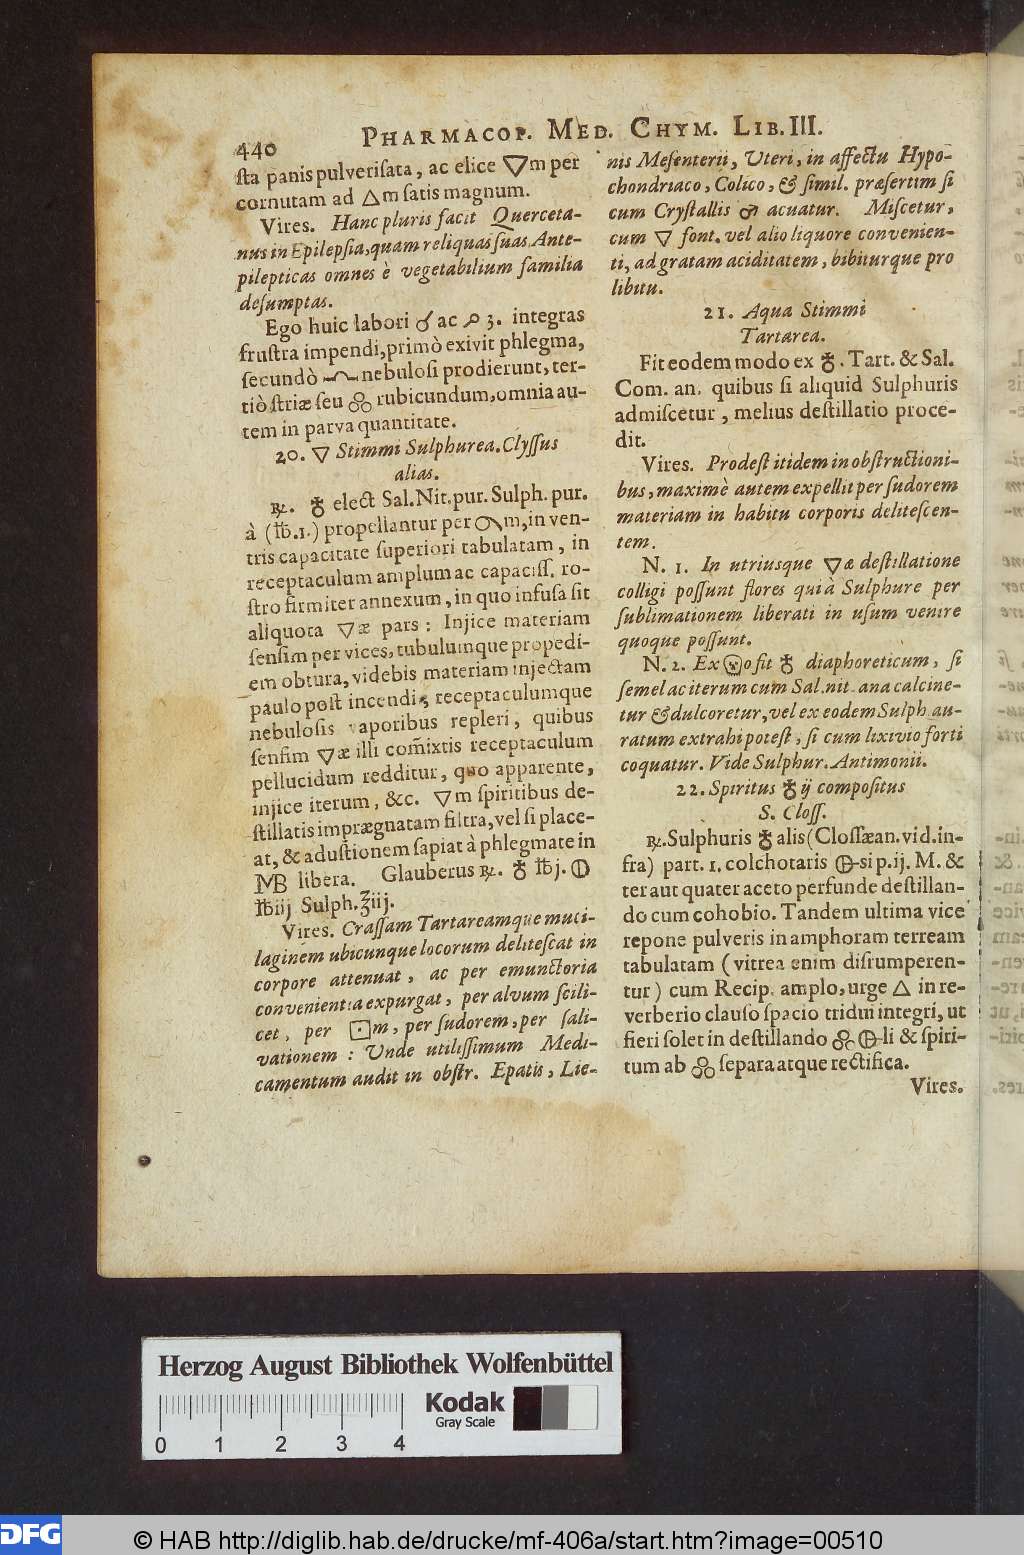 440
PHARMACOP. MED. CHYM. LIB. III.
sta panis pulverisata, ac elice 🜄m per
cornutam ad 🜂m satis magnum.
Vires. Hanc pluris facit Querceta-
nus in Epilepsia, quam reliquas suas Ante-
pilepticas omnes è vegetabilium familia
desumptas.
Ego huic labori ac 3. integras
frustra impendi, primò exivit phlegma,
secundò nebulosi prodierunt, ter-
tiò striæ seu rubicundum, omnia au-
tem in parva quantitate.
20. 🜄 Stimmi Sulphurea. Clyssus
alias.
℞. ♁ elect Sal. Nit. pur. Sulph. pur.
à (℔.1.) propellantur per m, in ven-
tris capacitate superiori tabulatam, in
receptaculum amplum ac capaciss. ro-
stro firmiter annexum, in quo infusa sit
aliquota 🜄æ pars: Injice materiam
sensim per vices, tubulumque propedi-
em obtura, videbis materiam injectam
paulo post incendi, receptaculumque
nebulosis vaporibus repleri, quibus
sensim 🜄æ illi com̃ixtis receptaculum
pellucidum redditur, quo apparente,
injice iterum, &c. 🜄m spiritibus de-
stillatis imprægnatam filtra, vel si place-
at, & adustionem sapiat à phlegmate in
MB libera. Glauberus ℞. ♁ ℔j. 🜕
℔iij Sulph. ʒiij.
Vires. Crassam Tartareamque muci-
laginem ubicunque locorum delitescat in
corpore attenuat, ac per emunctoria
convenientia expurgat, per alvum scili-
cet, per ⊡m, per sudorem, per sali-
vationem: Unde utilissimum Medi-
camentum audit in obstr. Epatis, Lie-
nis Mesenterii, Uteri, in affectu Hypo-
chondriaco, Colico, & simil. præsertim si
cum Crystallis ♂ acuatur. Miscetur,
cum 🜄 font. vel alio liquore convenien-
ti, ad gratam aciditatem, bibiturque pro
libitu.
21. Aqua Stimmi
Tartarea.
Fit eodem modo ex ♁. Tart. & Sal.
Com. an. quibus si aliquid Sulphuris
admiscetur, melius destillatio proce-
dit.
Vires. Prodest itidem in obstructioni-
bus, maximè autem expellit per sudorem
materiam in habitu corporis delitescen-
tem.
N. 1. In utriusque 🜄æ destillatione
colligi possunt flores qui à Sulphure per
sublimationem liberati in usum venire
quoque possunt.
N. 2. Ex o fit ♁ diaphoreticum, si
semel ac iterum cum Sal. nit. ana calcine-
tur & dulcoretur, vel ex eodem Sulph. au-
ratum extrahi potest, si cum lixivio forti
coquatur. Vide Sulphur. Antimonii.
22. Spiritus ♁ij compositus
S. Closs.
℞. Sulphuris ♁alis (Clossæan. vid. in-
fra) part. 1. colchotaris -si p. ij. M. &
ter aut quater aceto perfunde destillan-
do cum cohobio. Tandem ultima vice
repone pulveris in amphoram terream
tabulatam (vitrea enim disrumperen-
tur) cum Recip. amplo, urge 🜂 in re-
verberio clauso spacio tridui integri, ut
fieri solet in destillando -li & spiri-
tum ab separa atque rectifica.
Vires.
Herzog August Bibliothek Wolfenbüttel
Kodak
Gray Scale
0 1 2 3 4
DFG
© HAB http://diglib.hab.de/drucke/mf-406a/start.htm?image=00510